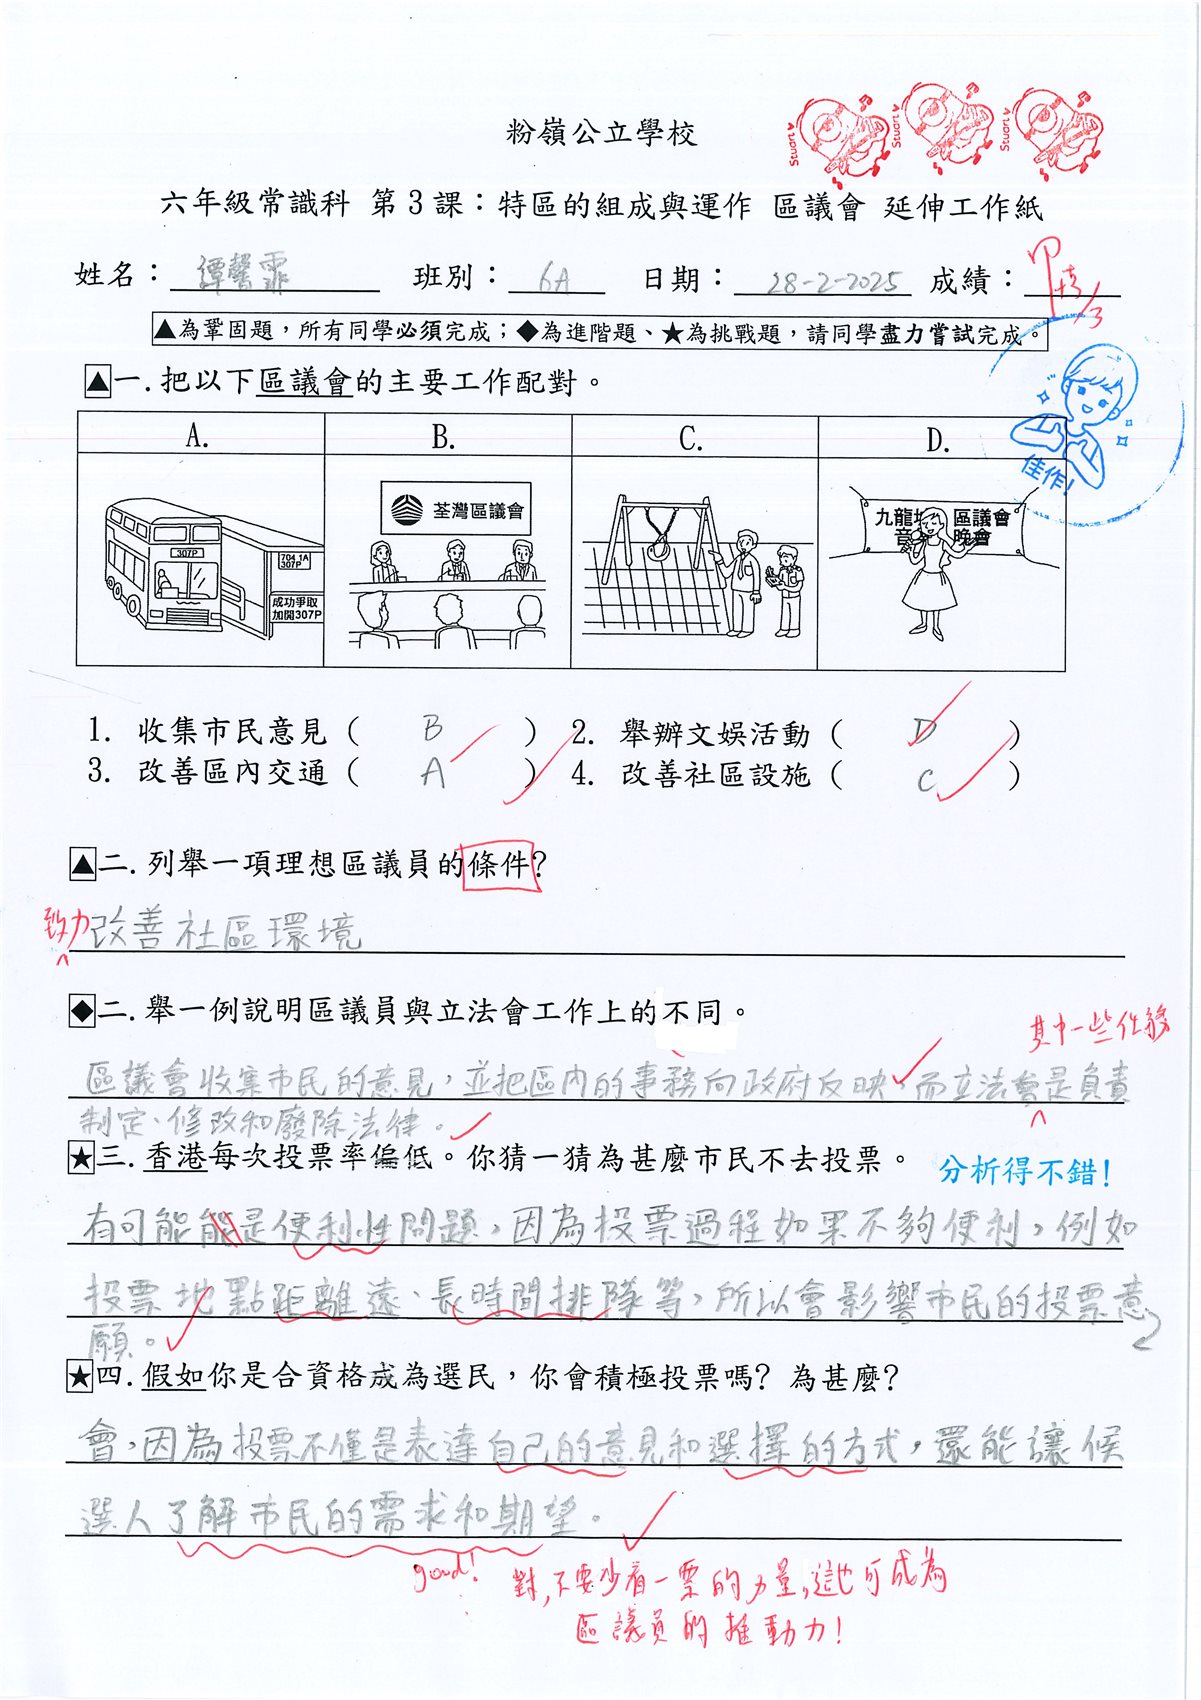 Stuart
Stuart
Stuart
粉嶺公立學校
六年級常識科 第3課：特區的組成與運作 區議會 延伸工作紙
姓名：譚馨霏 班別：6A 日期：28-2-2025 成績：甲
▲為鞏固題，所有同學必須完成；◆為進階題、★為挑戰題，請同學盡力嘗試完成。
佳作!
▲一.把以下區議會的主要工作配對。
A. B. C. D.
307P
704.1A
307P
成功爭取
加開307P
荃灣區議會
九龍城 區議會
音 晚會
1. 收集市民意見（ B ） 2. 舉辦文娛活動（ D ）
3. 改善區內交通（ A ） 4. 改善社區設施（ C ）
▲二.列舉一項理想區議員的條件?
致力改善社區環境
◆二.舉一例說明區議員與立法會工作上的不同。
其中一些任務
區議會收集市民的意見，並把區內的事務向政府反映，而立法會是負責
制定、修改和廢除法律。
★三.香港每次投票率偏低。你猜一猜為甚麼市民不去投票。
分析得不錯!
有可能能是便利性問題，因為投票過程如果不夠便利，例如
投票地點距離遠、長時間排隊等，所以會影響市民的投票意
願。
★四.假如你是合資格成為選民，你會積極投票嗎? 為甚麼?
會，因為投票不僅是表達自己的意見和選擇的方式，還能讓候
選人了解市民的需求和期望。
good!
對，不要少看一票的力量，這也可成為
區議員的推動力!